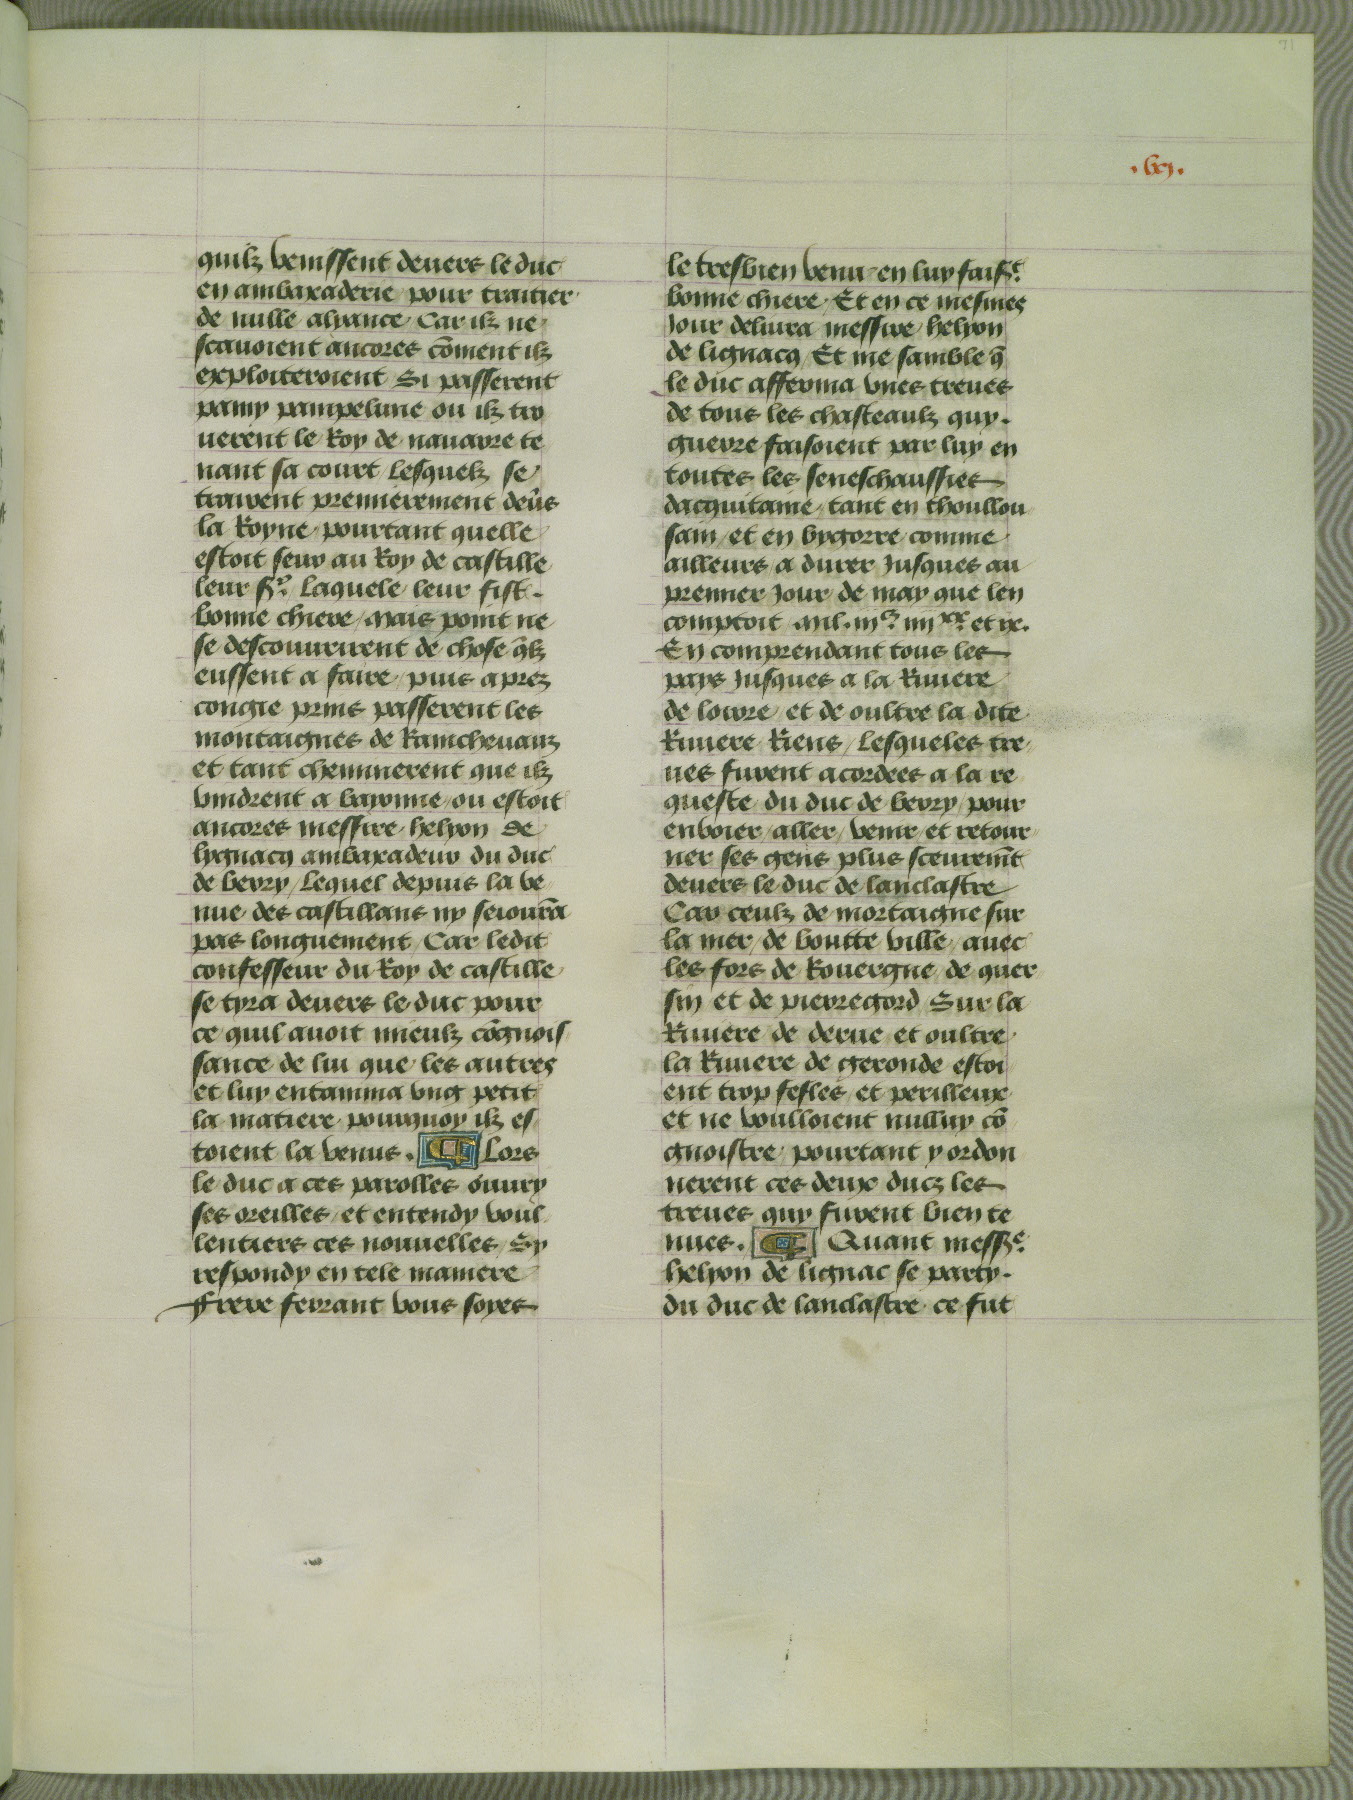 71
.lxj.
quilz venissent deuers le duc
en ambaxaderie pour traitier
de nulle alyance Car ilz ne
scauoient ancores co͂ment ilz
exploiteroient Si passerent
parmy pampelune ou ilz tro
uerent le Roy de nauarre te
nant sa court Lesquelz se
trairent premierement deu͛s
la Royne pourtant quelle
estoit seur au Roy de castille
leur sr̃ / Laquele leur fist.
bonne chiere / Mais point ne
se descouurirent de chose qlz̃
eussent a faire / puis aprez
congie prins passerent les
montaignes de Rainchevaux
et tant cheminerent que ilz
vindrent a bayonne / ou estoit
ancores messire helyon de
lygnacq ambaxadeur du duc
de berry / Lequel depuis la ve
nue des castillans ny seiourna͂
pas longuement / Car ledit
confesseur du Roy de castille
se tyra deuers le duc pour
ce quil auoit mieulz co͂gnois
sance de lui que les autres
et luy entamma vng petit
la matiere pourquoy ilz es
toient la venus. ¶ Lors
le duc a ces parolles ouury
ses oreilles / et entendy voul
lentiers ces nouuelles / Sy
respondy en tele maniere
Frere ferrant vous soyes
le tresbien venu en luy faist̃
bonne chiere / Et en ce mesmes
Jour deliura messire helyon
de lignacq Et me samble q̃
le duc afferma vnes treues
de tous les chasteaulz quy.
guerre faisoient par luy en
toutes les seneschaussies
dacquitaine / tant en thoullou
sain / et en bygorre / comme
ailleurs a durer Jusques au
premier Jour de may que len
comptoit .mil. iijc. iiijxx. et ix.
En comprendant tous les
pays Jusques a la Riuiere
de loirre / et de oultre la dite
Riuiere Riens / Lesqueles tre
ues furent acordees a la re
queste du duc de berry / pour
enuoier / aller / venir / et retour
ner ses gens plus sceurem̃t
deuers le duc de lanclastre
Car ceulz de mortaigne sur
la mer / de boutte ville / auec
les fors de Rouergne / de quer
sin et de pierregord Sur la
Riuiere de derne et oultre
la Riuiere de geronde estoi
ent trop felles et perilleux
et ne voulloient nulluy co͂
gnoistre / pourtant y ordon
nerent ces deux ducz les
treues quy furent bien te
nues. ¶ Quant messr̃e
helyon de lignac se party.
du duc de lanclastre ce fut